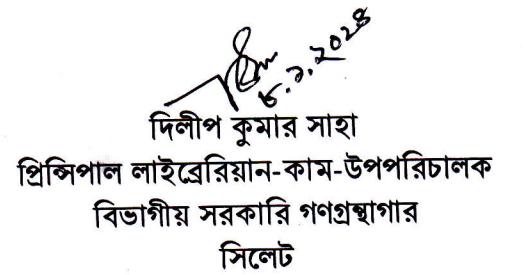 ৮.১.২০২৪
দিলীপ কুমার সাহা
প্রিন্সিপাল লাইব্রেরিয়ান-কাম-উপপরিচালক
বিভাগীয় সরকারি গণগ্রন্থাগার
সিলেট